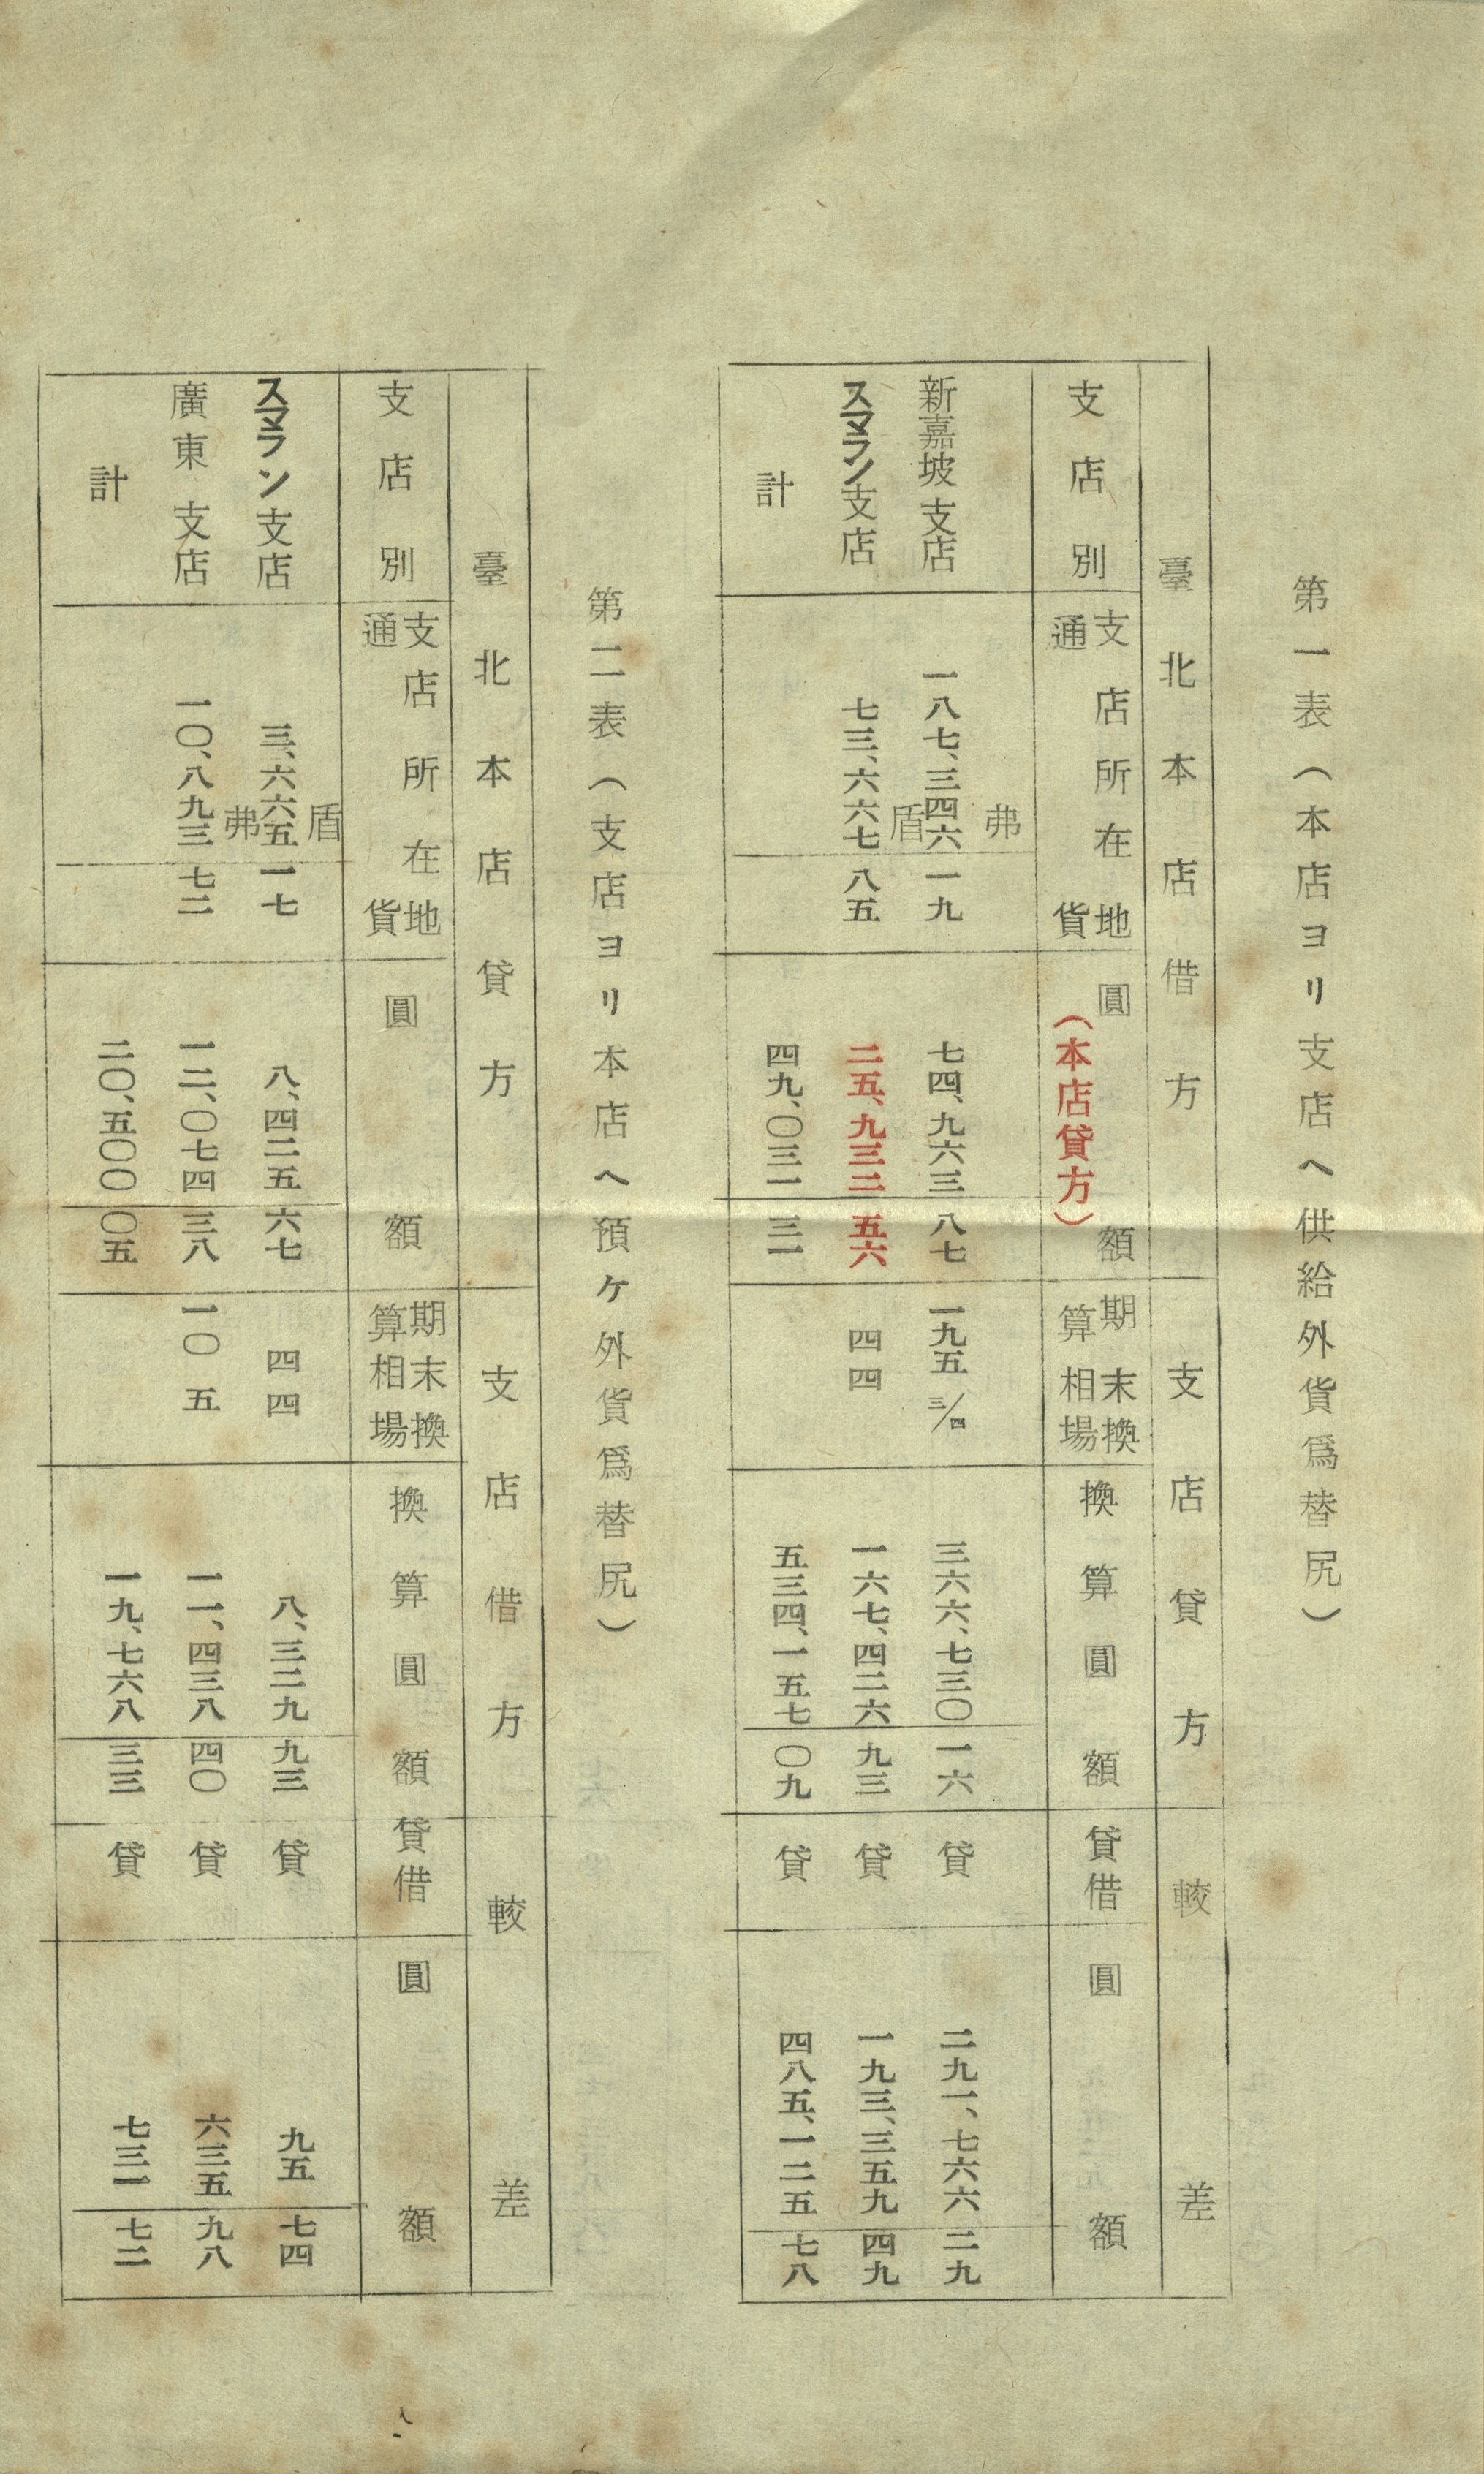 第一表（本店ヨリ支店へ供給外貨爲替尻）
臺北本店借方 支店貸方 較差
支店別 支店所在地通貨 圓額（本店貸方） 期末換算相場 換算圓額 貸借 圓額
弗
新嘉坡支店 一八七、三四六 一九 七四、九六三 八七 一九五 三/四 三六六、七三〇 一六 貸 二九一、七六六 二九
盾
スマラン支店 七三、六六七 八五 二五、九三二 五六 四四 一六七、四二六 九三 貸 一九三、三五九 四九
計 四九、〇三一 三一 五三四、一五七 〇九 貸 四八五、一二五 七八
第二表（支店ヨリ本店へ預ケ外貨爲替尻）
臺北本店貸方 支店借方 較差
支店別 支店所在地通貨 圓額 期末換算相場 換算圓額 貸借 圓額
盾
スマラン支店 三、六六五 一七 八、四二五 六七 四四 八、三二九 九三 貸 九五 七四
弗
廣東支店 一〇、八九三 七二 一二、〇七四 三八 一〇五 一一、四三八 四〇 貸 六三五 九八
計 二〇、五〇〇 〇五 一九、七六八 三三 貸 七三一 七二